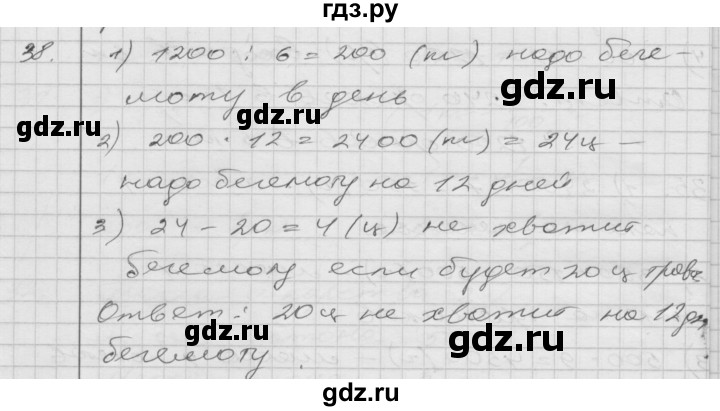 гдз.ру
38. 1) 1200 : 6 = 200 (т) надо беге-
моту в день
gdz.ru
gdz.ru
2) 200 · 12 = 2400 (т) = 24ц –
надо бегемоту на 12 дней
3) 24 – 20 = 4 (ц) не хватит
бегемоту если будет 20 ц травы
gdz.ru
Ответ: 20ц не хватит на 12 дн
gdz.ru
gdz.ru
бегемоту.
gdz.ru